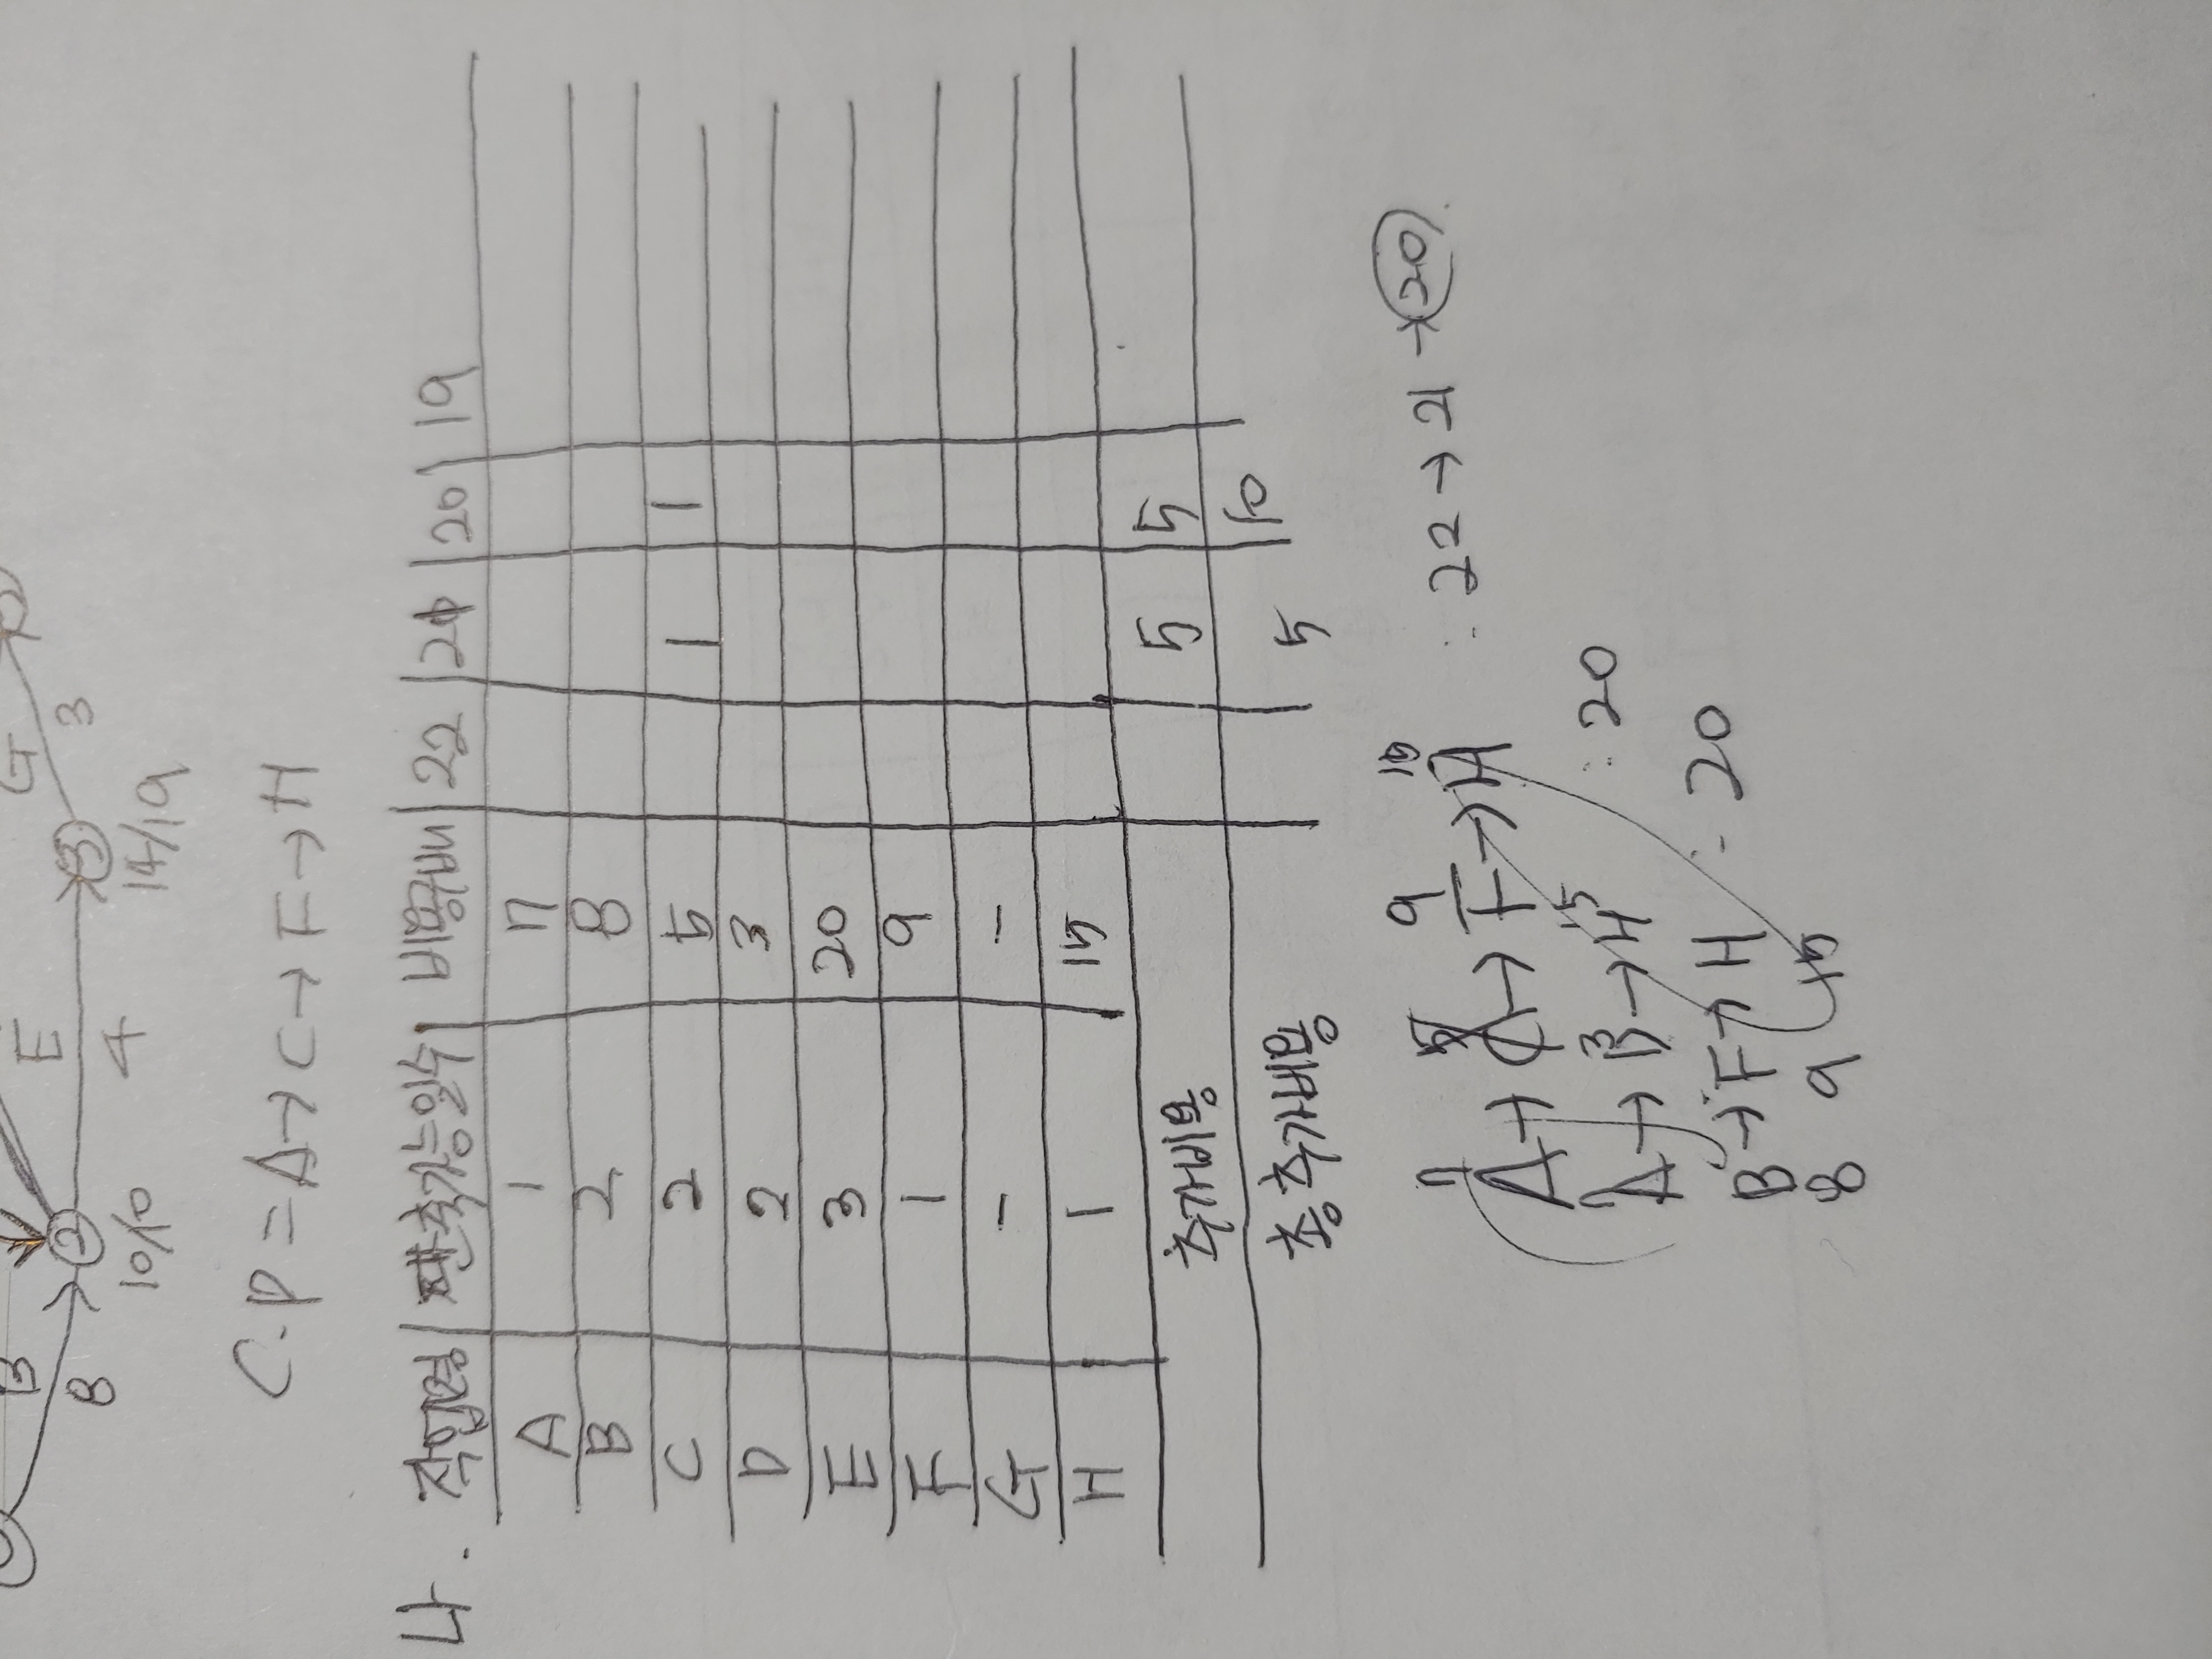 G
3
E
4
B
8
②
10/10
③
14/19
C.P = A → C → F → H
나. 작업명 단축가능일수 비용구배 22 21 20 19
A 1 7
B 2 8
C 2 5 1 1
D 2 3
E 3 20
F 1 9
G - -
H 1 15
추가비용 5 5
총 추가비용 5 10
7 5 9 15
A → C → F → H : 22 → 21 → 20
3 15
A → D → H : 20
B → F → H : 20
8 9 15